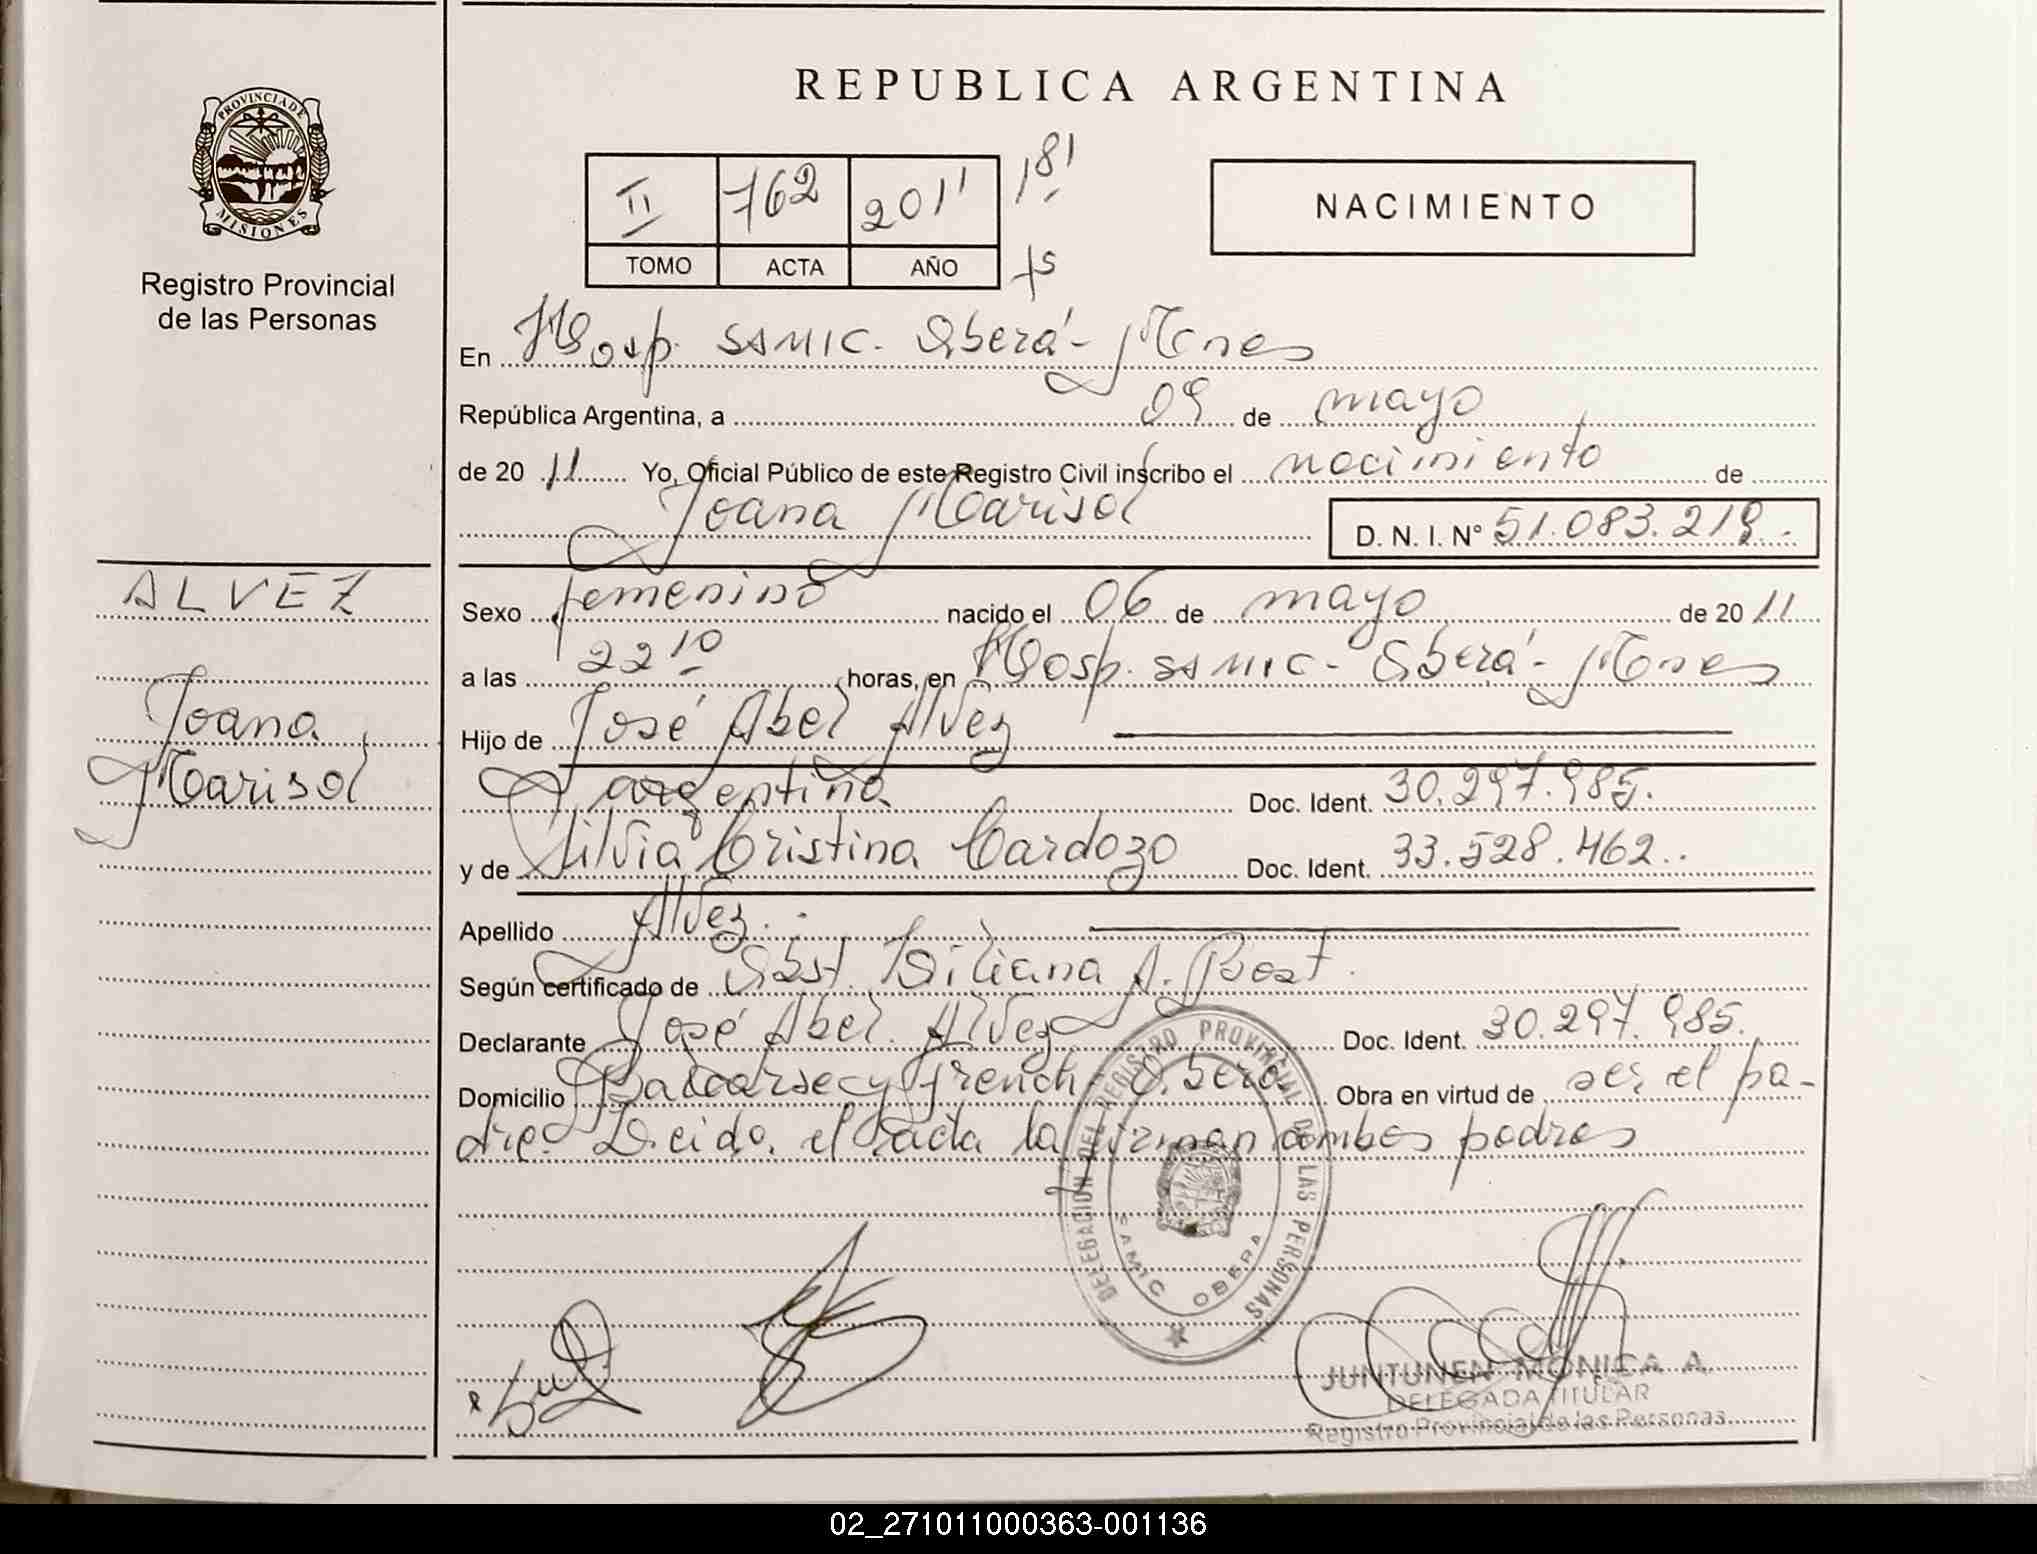 REPUBLICA ARGENTINA
PROVINCIA DE
MISIONES
Registro Provincial
de las Personas
II 762 2011 181
TOMO ACTA AÑO
NACIMIENTO
En Hosp. SAMIC. Oberá - Mnes
República Argentina, a 09 de mayo
de 20 11 Yo, Oficial Público de este Registro Civil inscribo el nacimiento de
Joana Marisol D. N. I. N° 51.083.219.
ALVEZ
Joana
Marisol
Sexo femenino nacido el 06 de mayo de 20 11
a las 22 10 horas, en Hosp. SAMIC - Oberá - Mnes
Hijo de José Abel Alvez
argentino Doc. Ident. 30.297.985.
y de Silvia Cristina Cardozo Doc. Ident. 33.528.462.
Apellido Alvez.
Según certificado de Obst. Liliana A.
Declarante José Abel Alvez Doc. Ident. 30.297.985.
Domicilio Balcarse y French - Oberá Obra en virtud de ser el pa-
dre. Leida el acta la firman ambos padres
DELEGACION DEL REGISTRO PROVINCIAL DE LAS PERSONAS
SAMIC OBERA
JUNTUNEN MONICA A.
DELEGADA TITULAR
Registro Provincial de las Personas
02_271011000363-001136